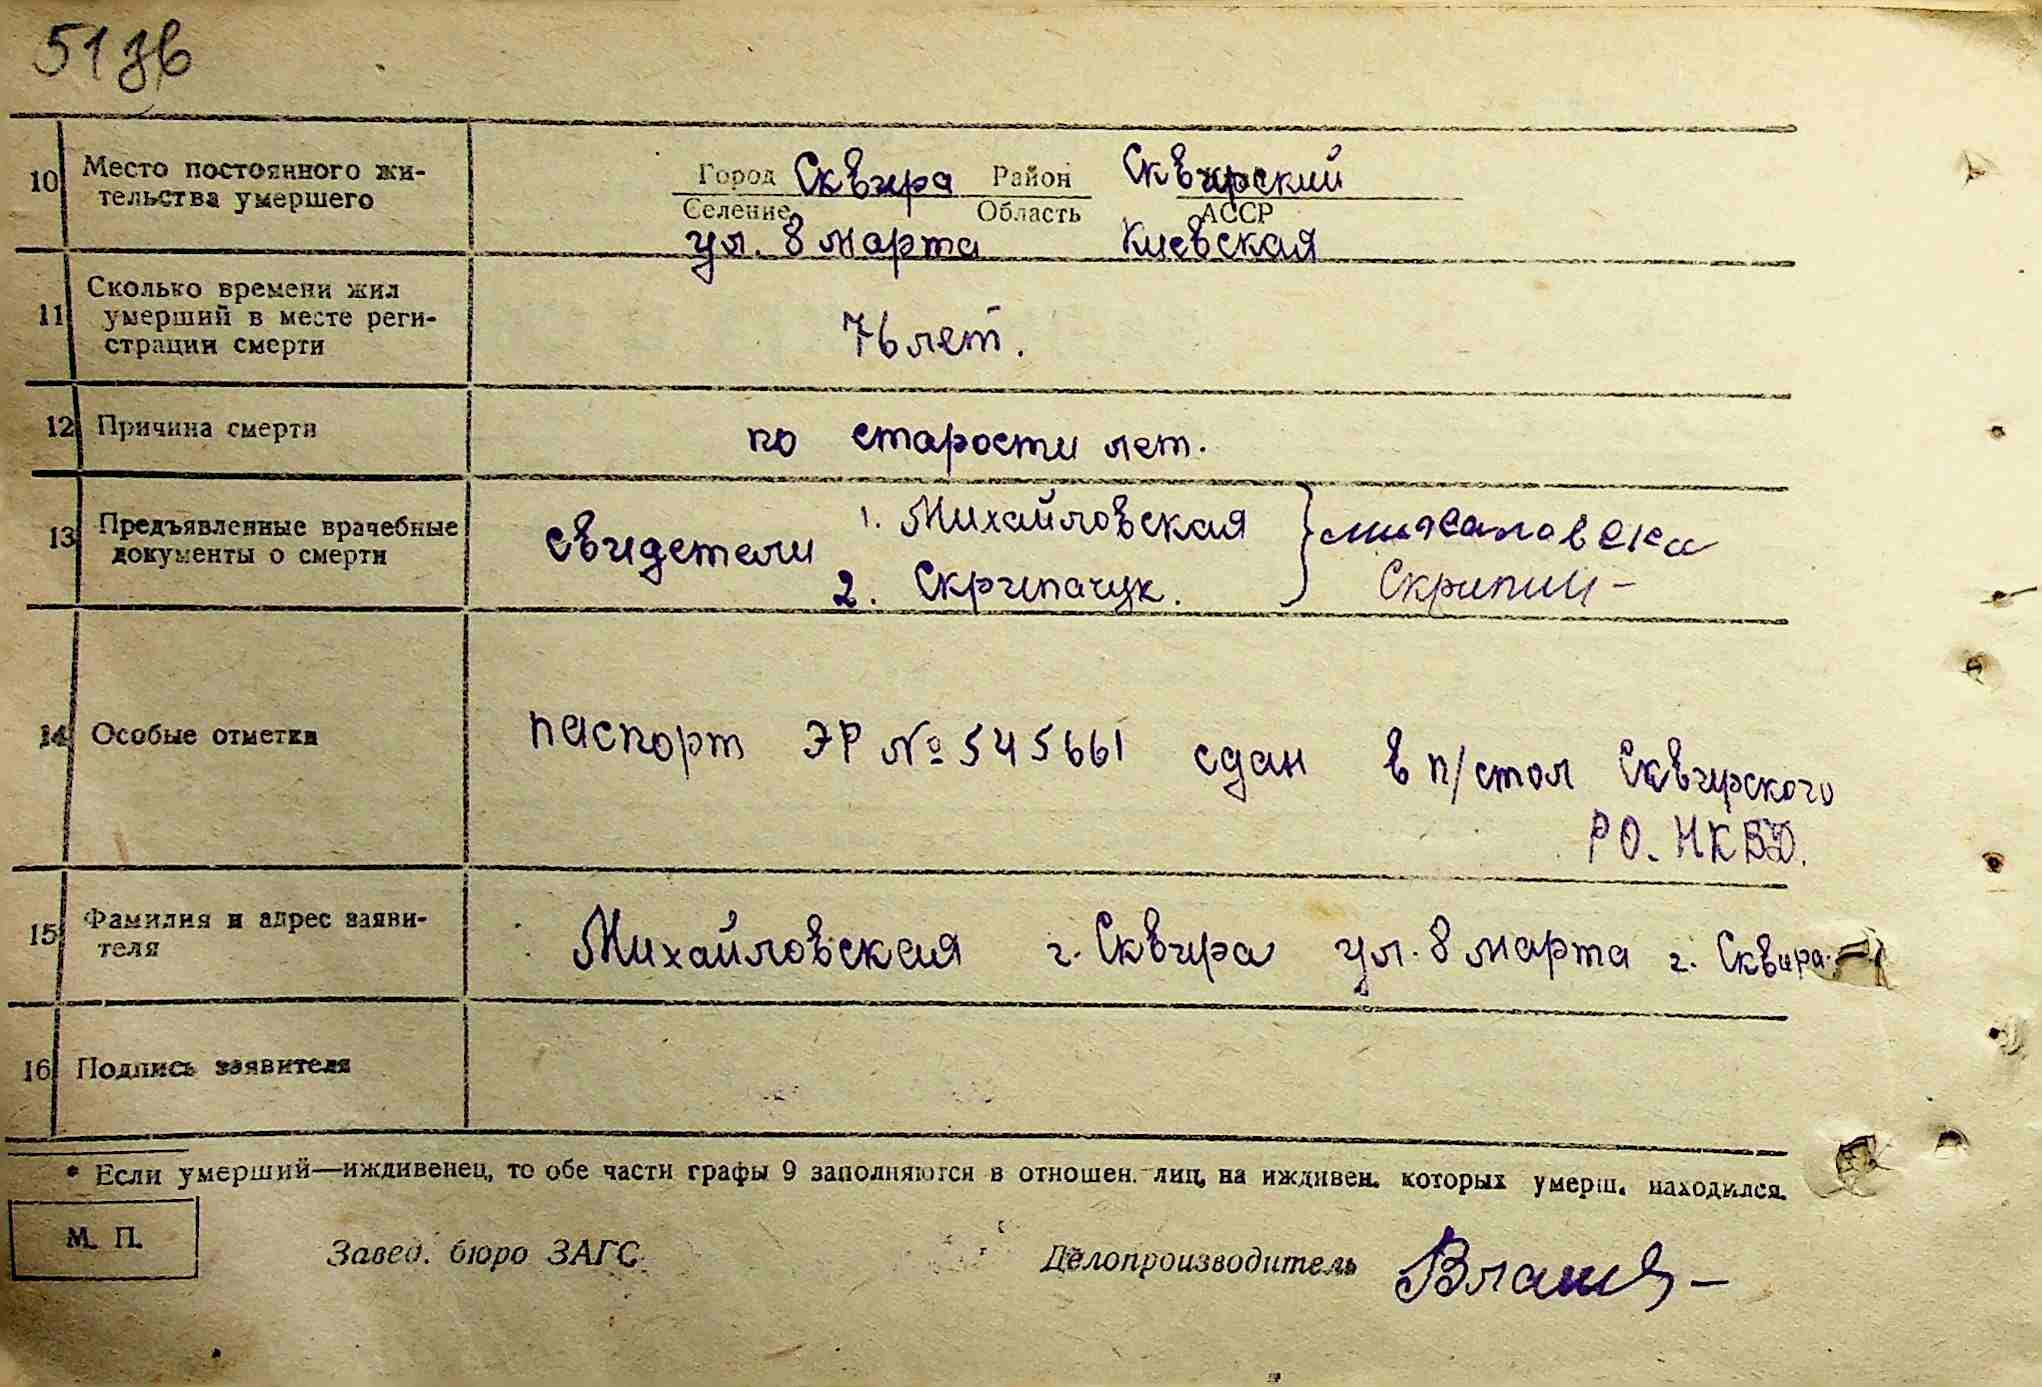 51 зв
10 Место постоянного жи-
тельства умершего
Город Сквира Район Сквирский
Селение Область АССР
ул. 8 марта Киевская
11 Сколько времени жил
умерший в месте реги-
страции смерти
76 лет.
12 Причина смерти
по старости лет.
13 Предъявленные врачебные
документы о смерти
свидетели
1. Михайловская
2. Скрипачук.
14 Особые отметки
паспорт ЭР № 545661 сдан в п/стол Сквирского
РО. НКВД.
15 Фамилия и адрес заяви-
теля
Михайловская г. Сквира ул. 8 марта г. Сквира.
16 Подпись заявителя
* Если умерший—иждивенец, то обе части графы 9 заполняются в отношен. лиц, на иждивен. которых умерш. находился.
М. П.
Завед. бюро ЗАГС
Делопроизводитель